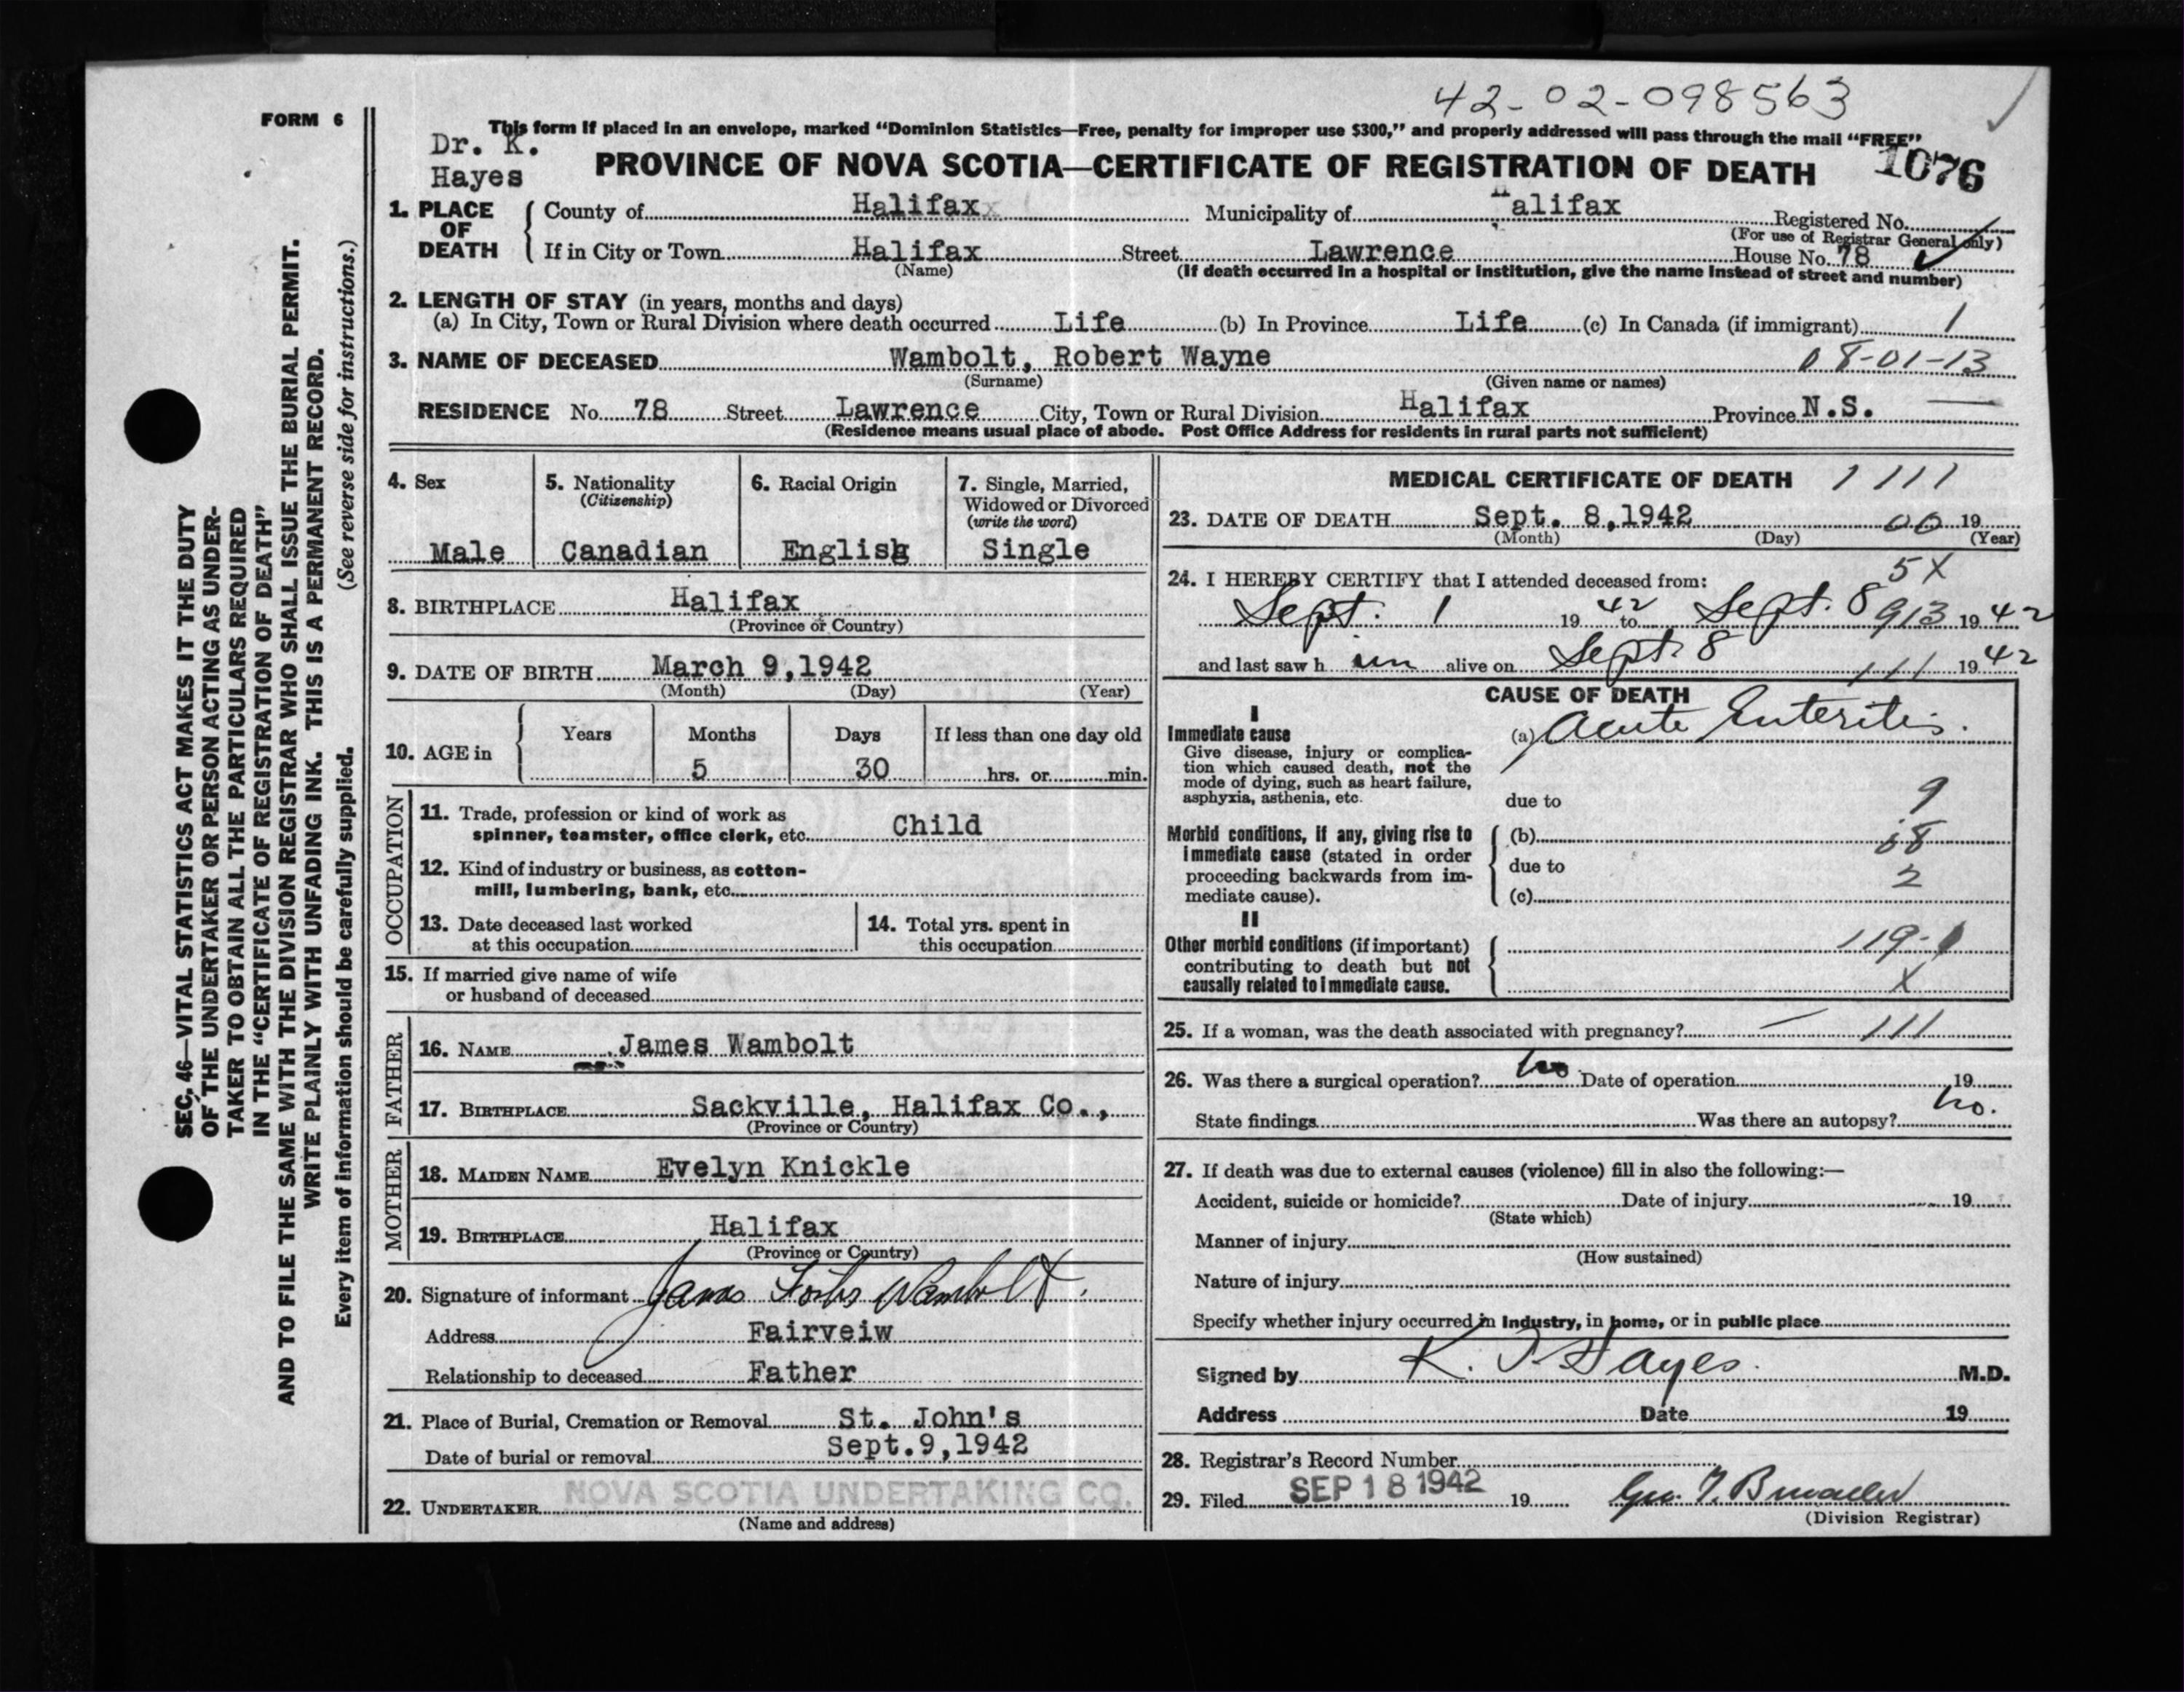 42-02-098563
FORM 6
This form if placed in an envelope, marked “Dominion Statistics—Free, penalty for improper use $300,” and properly addressed will pass through the mail “FREE”
Dr. K.
Hayes
PROVINCE OF NOVA SCOTIA—CERTIFICATE OF REGISTRATION OF DEATH
1076
1. PLACE OF DEATH
County of Halifax Municipality of Halifax Registered No.
(For use of Registrar General only)
If in City or Town Halifax Street Lawrence House No. 78
(Name) (If death occurred in a hospital or institution, give the name instead of street and number)
2. LENGTH OF STAY (in years, months and days)
(a) In City, Town or Rural Division where death occurred Life (b) In Province Life (c) In Canada (if immigrant) 1
3. NAME OF DECEASED Wambolt, Robert Wayne 08-01-13
(Surname) (Given name or names)
RESIDENCE No. 78 Street Lawrence City, Town or Rural Division Halifax Province N.S.
(Residence means usual place of abode. Post Office Address for residents in rural parts not sufficient)
4. Sex
Male
5. Nationality
(Citizenship)
Canadian
6. Racial Origin
English
7. Single, Married,
Widowed or Divorced
(write the word)
Single
8. BIRTHPLACE Halifax
(Province or Country)
9. DATE OF BIRTH March 9,1942
(Month) (Day) (Year)
10. AGE in
Years Months Days If less than one day old
5 30 hrs. or min.
OCCUPATION
11. Trade, profession or kind of work as
spinner, teamster, office clerk, etc. Child
12. Kind of industry or business, as cotton-
mill, lumbering, bank, etc.
13. Date deceased last worked
at this occupation
14. Total yrs. spent in
this occupation
15. If married give name of wife
or husband of deceased
FATHER
16. NAME James Wambolt
17. BIRTHPLACE Sackville, Halifax Co.,
(Province or Country)
MOTHER
18. MAIDEN NAME Evelyn Knickle
19. BIRTHPLACE Halifax
(Province or Country)
20. Signature of informant James Forbes Wambolt.
Address Fairveiw
Relationship to deceased Father
21. Place of Burial, Cremation or Removal St. John's
Date of burial or removal Sept.9,1942
22. UNDERTAKER NOVA SCOTIA UNDERTAKING CO.
(Name and address)
MEDICAL CERTIFICATE OF DEATH 1 111
23. DATE OF DEATH Sept. 8,1942 00 19
(Month) (Day) (Year)
5X
24. I HEREBY CERTIFY that I attended deceased from:
Sept. 1 19 42 to Sept. 8 913 19 42
and last saw h im alive on Sept. 8 111 19 42
CAUSE OF DEATH
I
Immediate cause
Give disease, injury or complica-
tion which caused death, not the
mode of dying, such as heart failure,
asphyxia, asthenia, etc.
(a) Acute Enteritis.
due to 9
Morbid conditions, if any, giving rise to
immediate cause (stated in order
proceeding backwards from im-
mediate cause).
(b) 58
due to 2
(c)
II
Other morbid conditions (if important)
contributing to death but not
causally related to immediate cause.
119-1
X
25. If a woman, was the death associated with pregnancy? — 111
26. Was there a surgical operation? no Date of operation 19
State findings Was there an autopsy? no.
27. If death was due to external causes (violence) fill in also the following:—
Accident, suicide or homicide? Date of injury 19
(State which)
Manner of injury
(How sustained)
Nature of injury
Specify whether injury occurred in industry, in home, or in public place
Signed by K. Hayes. M.D.
Address Date 19
28. Registrar's Record Number
29. Filed SEP 18 1942 19
(Division Registrar)
SEC. 46—VITAL STATISTICS ACT MAKES IT THE DUTY
OF THE UNDERTAKER OR PERSON ACTING AS UNDER-
TAKER TO OBTAIN ALL THE PARTICULARS REQUIRED
IN THE “CERTIFICATE OF REGISTRATION OF DEATH”
AND TO FILE THE SAME WITH THE DIVISION REGISTRAR WHO SHALL ISSUE THE BURIAL PERMIT.
WRITE PLAINLY WITH UNFADING INK. THIS IS A PERMANENT RECORD.
Every item of information should be carefully supplied. (See reverse side for instructions.)